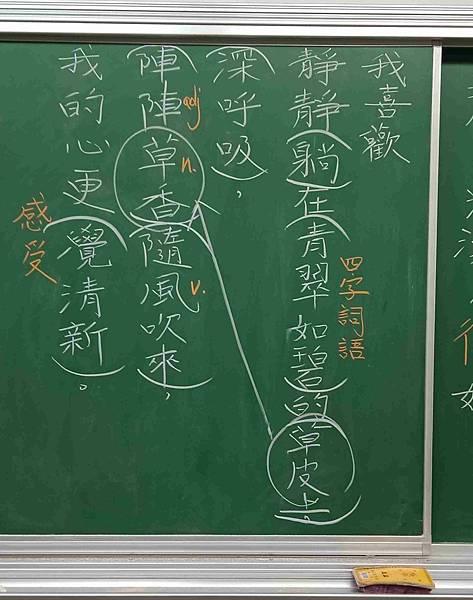 我喜歡
靜靜躺在青翠如碧的草皮上。
四字詞語
深呼吸，
陣陣草香隨風吹來，
adj
n.
v.
我的心更覺清新。
感受